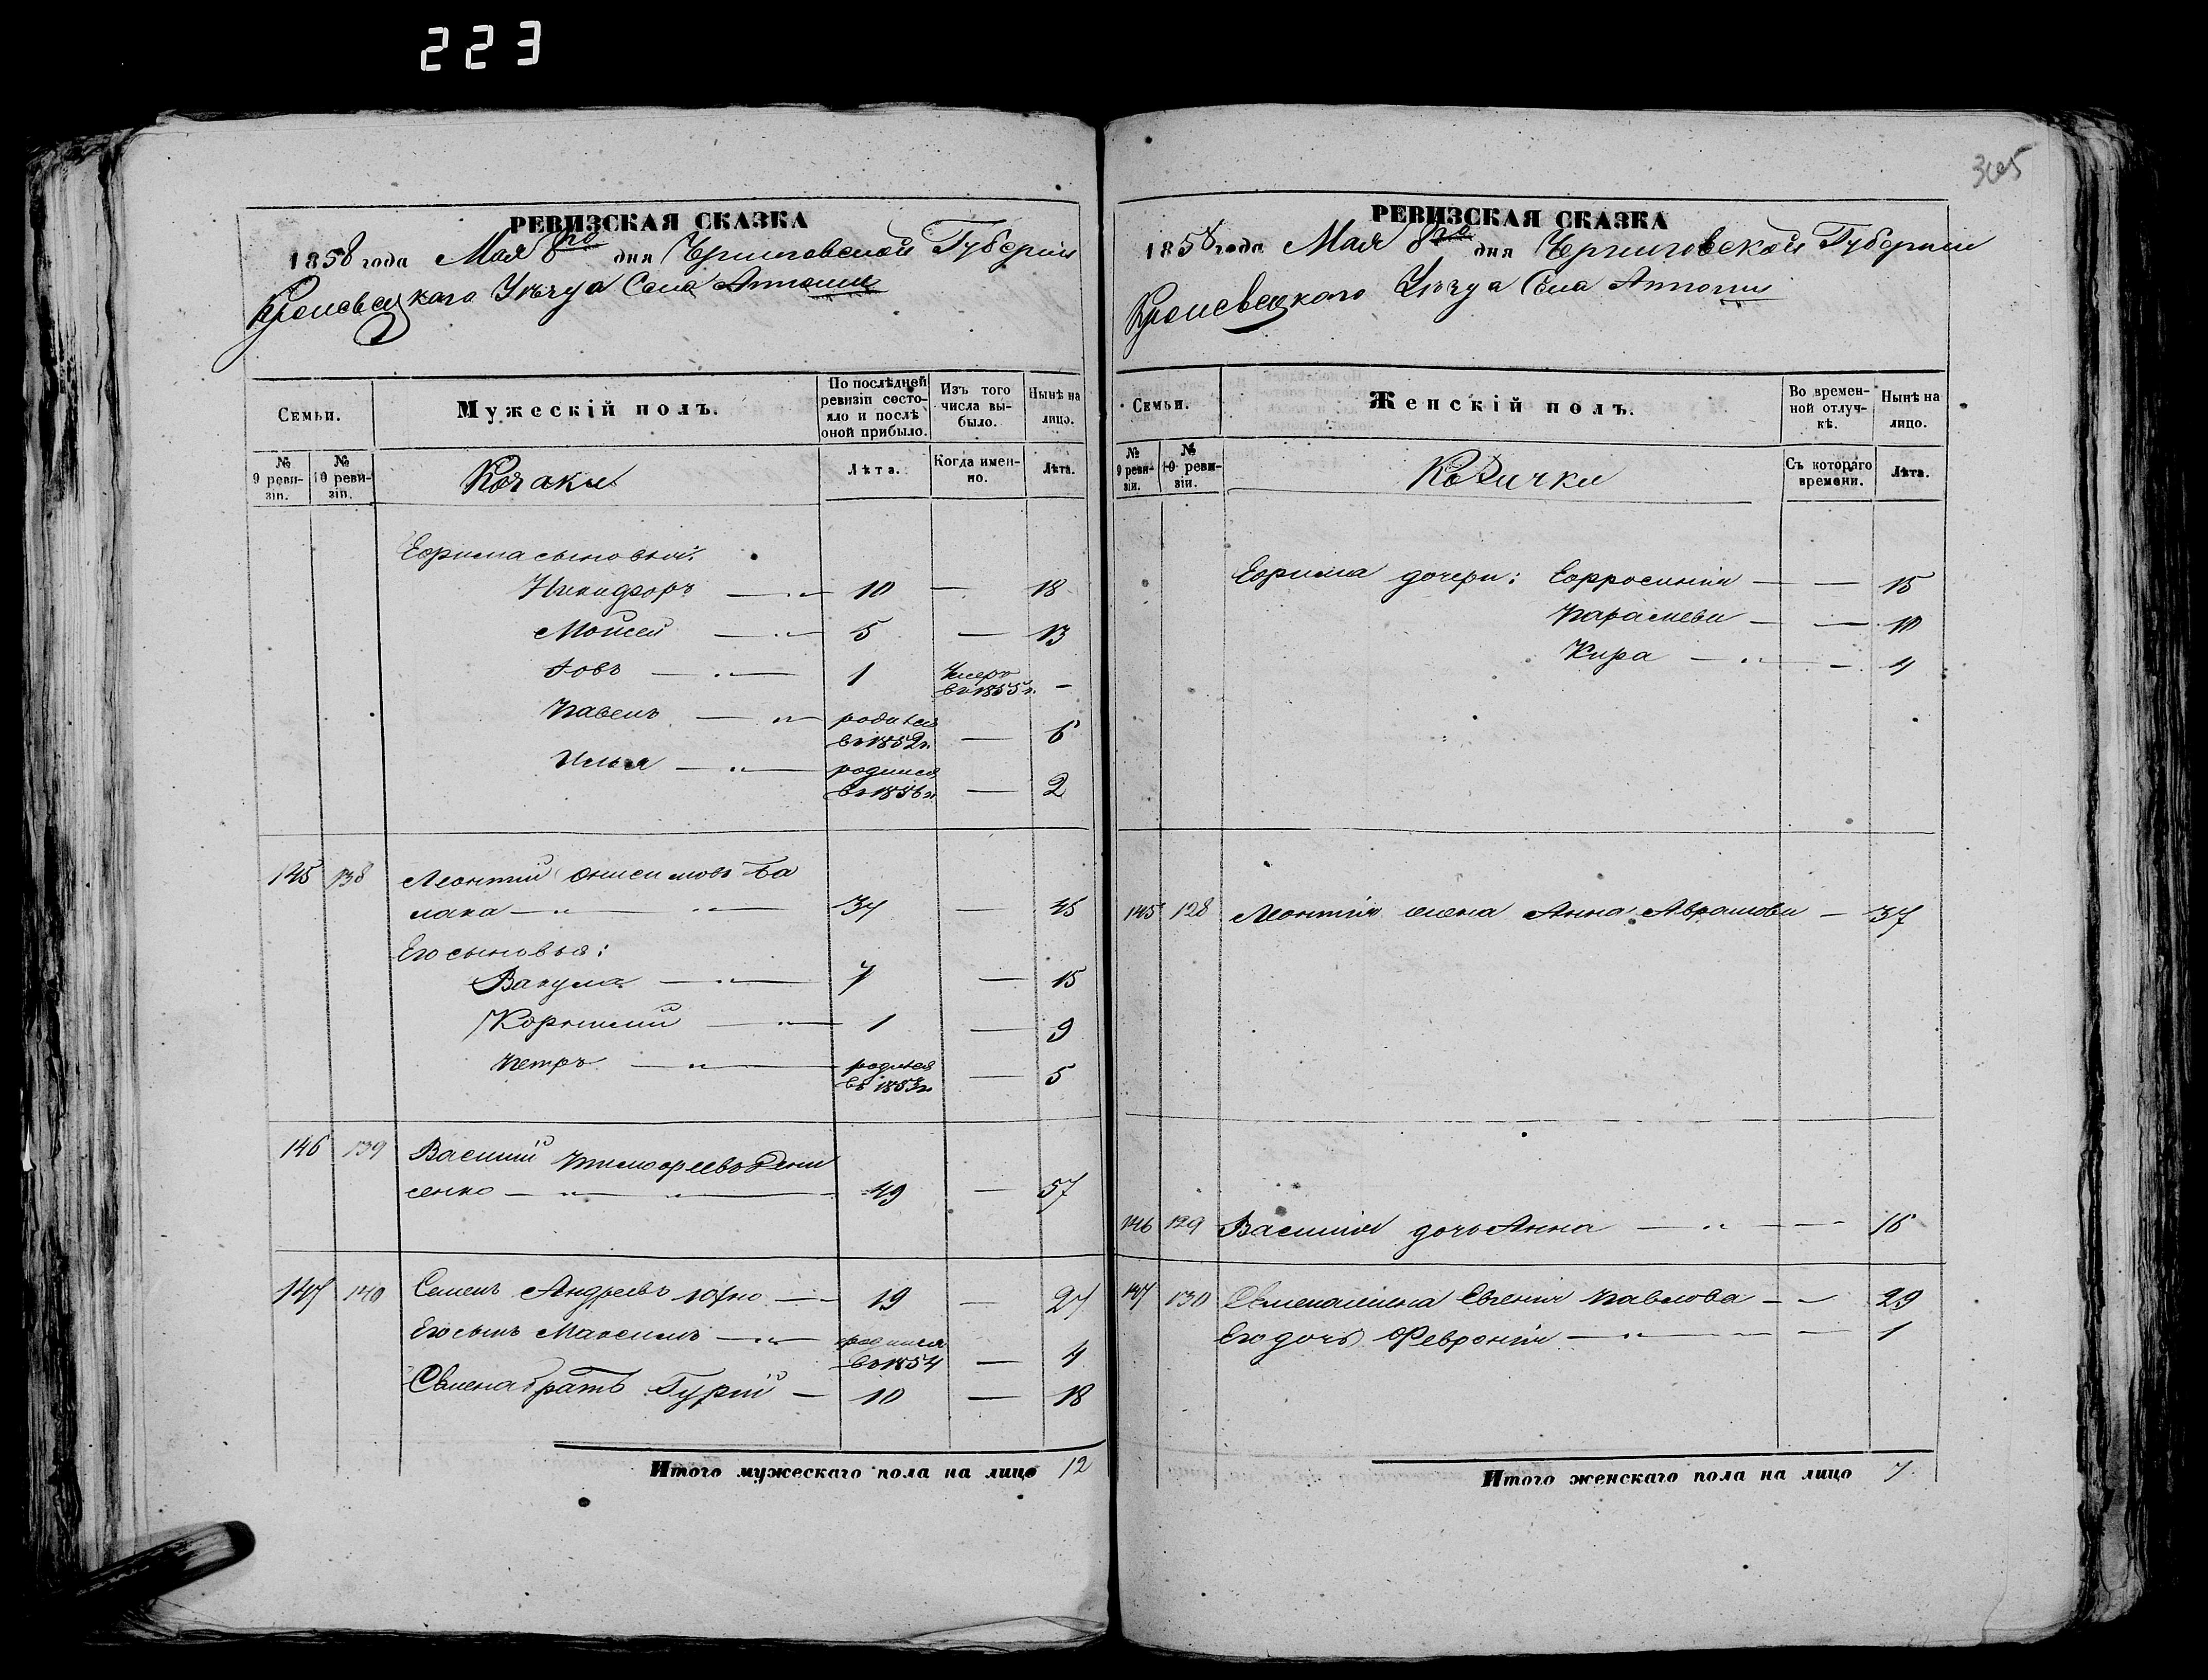 223
365
РЕВИЗСКАЯ СКАЗКА
1858 года Мая 8го дня Черниговской Губерніи
Кролевецкаго Уѣзда Села
Семьи.
Мужескій полъ.
По послѣдней ревизіи состояло и послѣ оной прибыло.
Изъ того числа выбыло.
Нынѣ на лицо.
№ 9 ревизіи.
№ 10 ревизіи.
Козаки
Лѣта.
Когда именно.
Лѣта.
Ефрима сыновья:
Никифоръ — 10 — 18
Моисей — 5 — 13
Іовъ — 1 Умеръ въ 1855 г. —
Павелъ — родился въ 1852 г. — 6
Илья — родился въ 1856 г. — 2
145 138 Леонтий Онисимовъ Ба
лака — 37 — 45
Его сыновья:
Вакула — 7 — 15
Корнилий — 1 — 9
Петръ — родился въ 1853 г. — 5
146 139 Василий Дени
сенко — 49 — 57
147 140 Семенъ Андреевъ — 19 — 27
Его сынъ Максимъ — родился въ 1854 — 4
Семена братъ Гурій — 10 — 18
Итого мужескаго пола на лицо 12
РЕВИЗСКАЯ СКАЗКА
1858 года Мая 8го дня Черниговской Губерніи
Кролевецкаго Уѣзда Села
Семьи.
Женскій полъ.
Во временной отлучкѣ.
Нынѣ на лицо.
№ 9 ревизіи.
№ 10 ревизіи.
Козачки
Съ котораго времени.
Лѣта.
Ефрима дочери: Ефросинія — — 15
Параскева — — 10
Кира — — 4
145 128 Леонтія жена Анна Абрамова — 37
146 129 Василія дочь Анна — — 16
147 130 Семена жена Евгенія Павлова — — 29
Его дочь Февронія — — 1
Итого женскаго пола на лицо 7